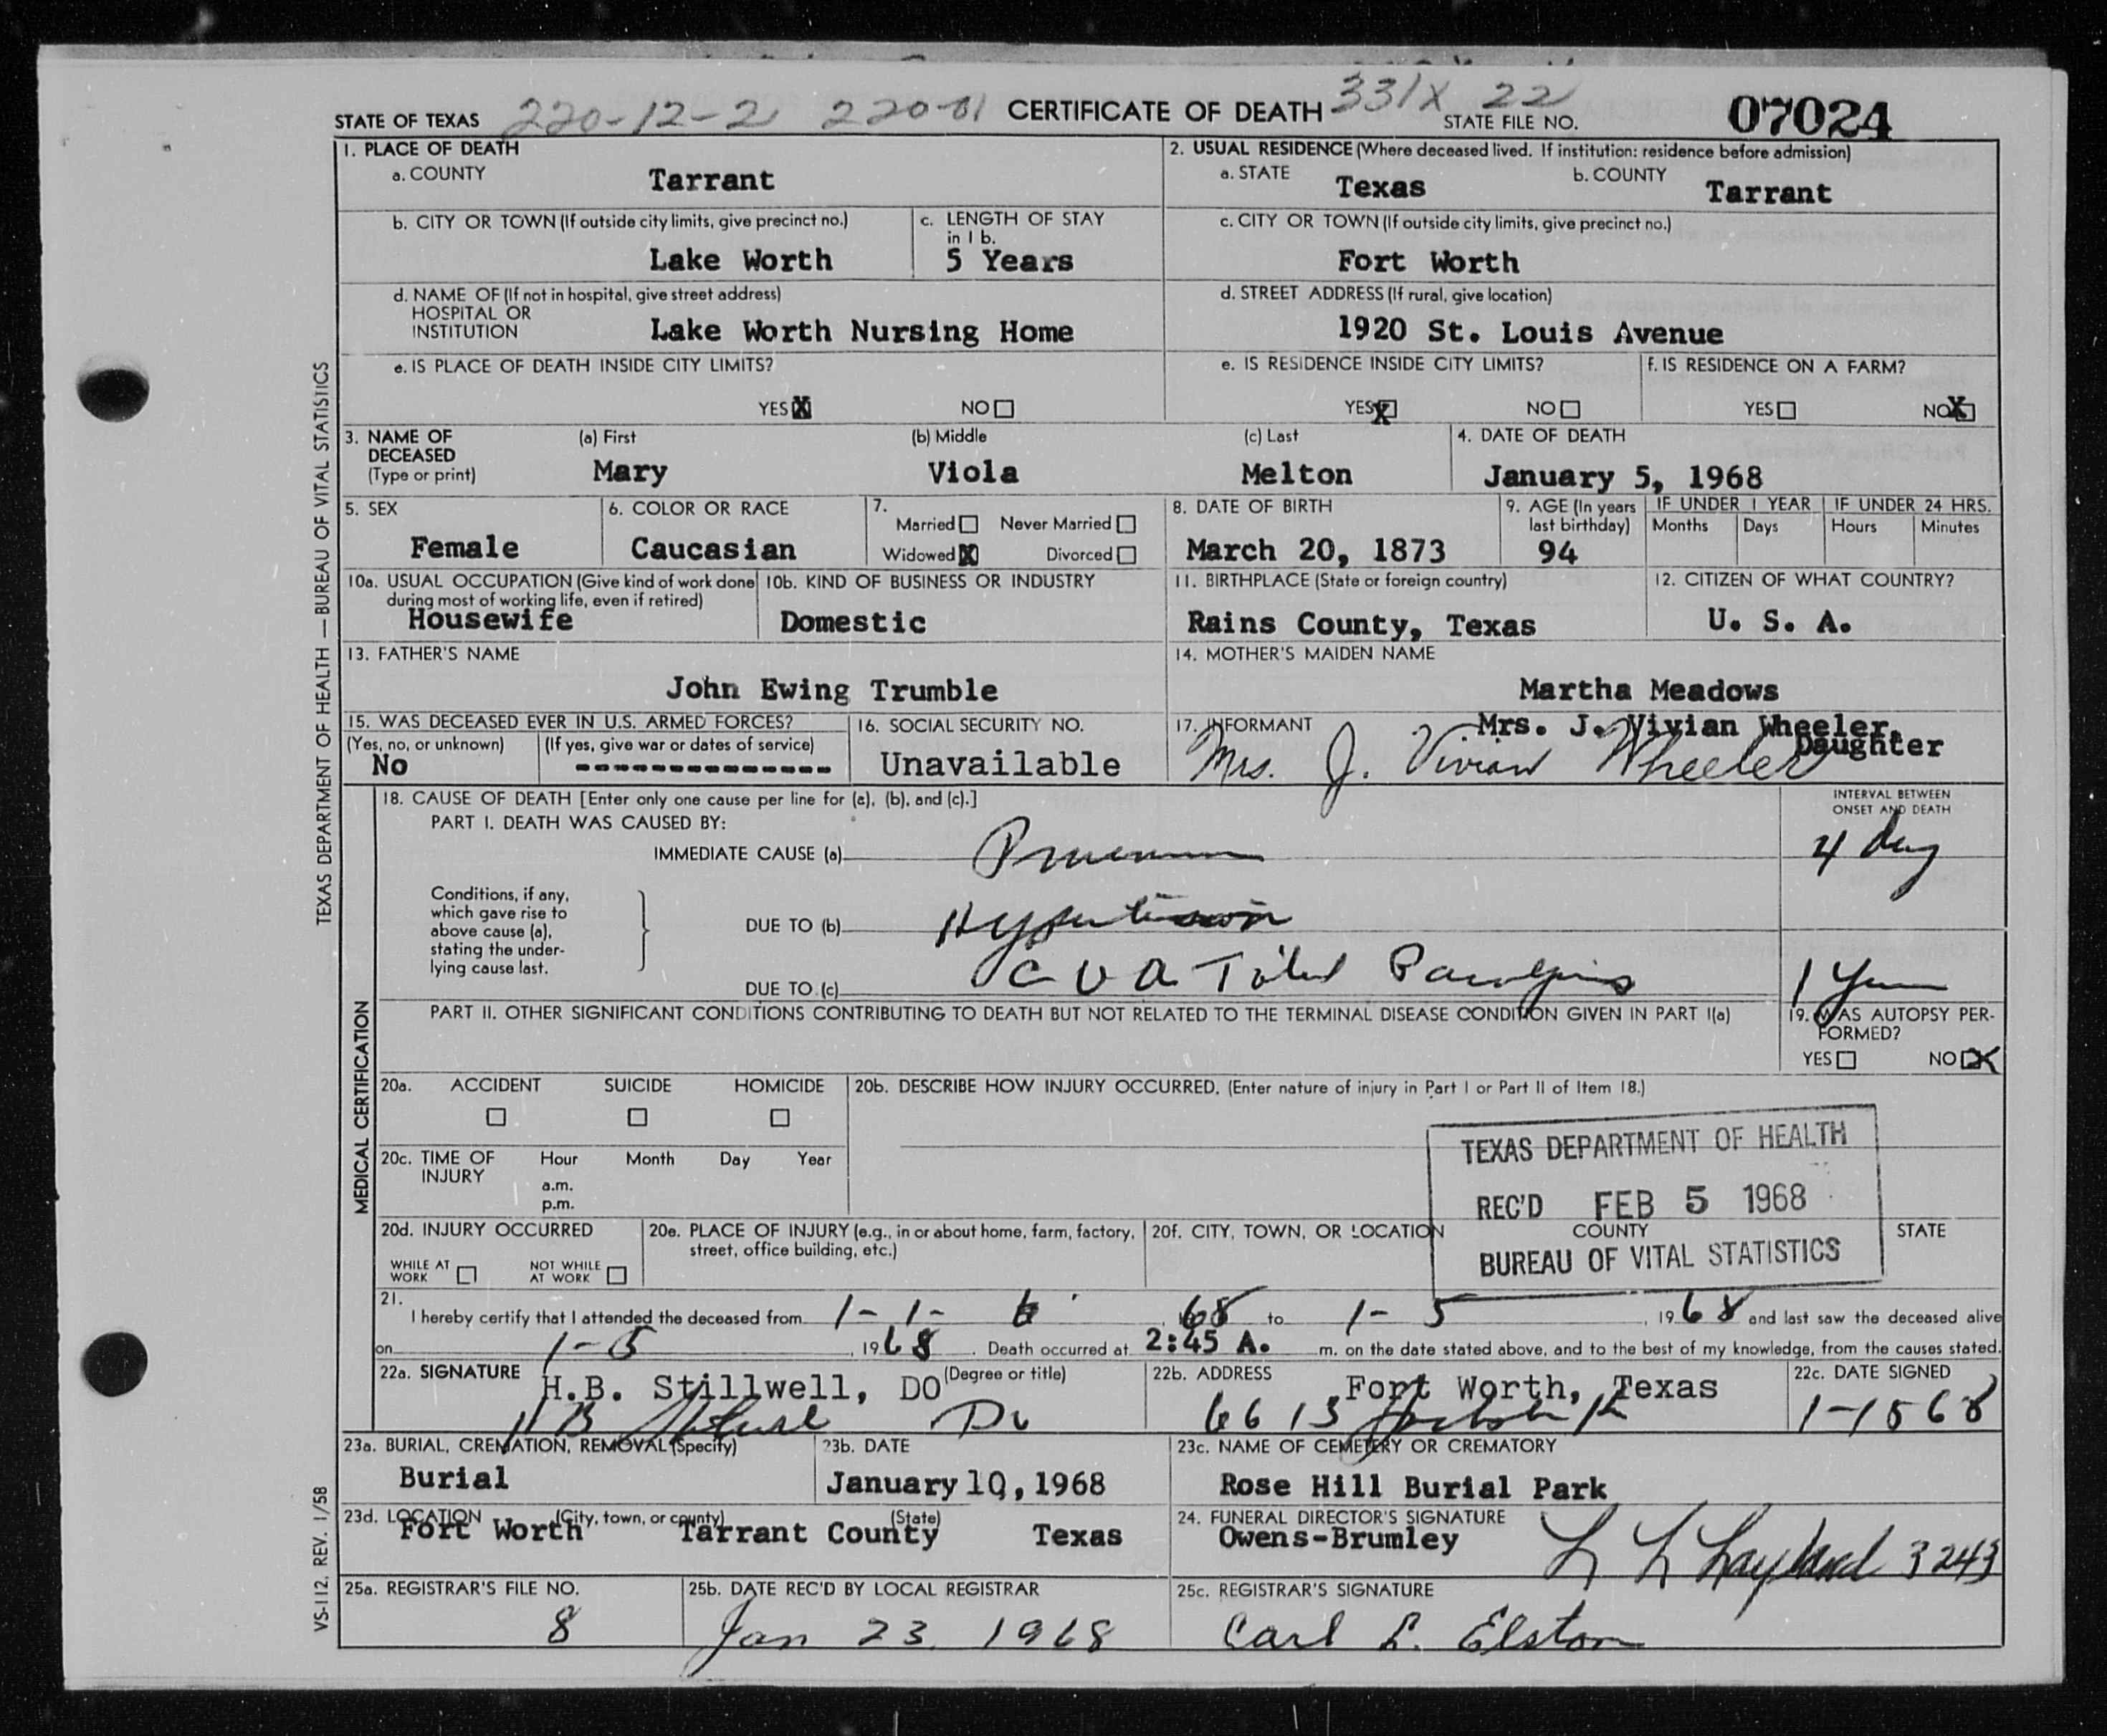 STATE OF TEXAS 220-12-2 220-01 CERTIFICATE OF DEATH 331X 22 STATE FILE NO. 07024
1. PLACE OF DEATH
a. COUNTY Tarrant
2. USUAL RESIDENCE (Where deceased lived. If institution: residence before admission)
a. STATE Texas b. COUNTY Tarrant
b. CITY OR TOWN (If outside city limits, give precinct no.)
Lake Worth
c. LENGTH OF STAY
in 1 b.
5 Years
c. CITY OR TOWN (If outside city limits, give precinct no.)
Fort Worth
d. NAME OF (If not in hospital, give street address)
HOSPITAL OR
INSTITUTION Lake Worth Nursing Home
d. STREET ADDRESS (If rural, give location)
1920 St. Louis Avenue
e. IS PLACE OF DEATH INSIDE CITY LIMITS?
YES X NO
e. IS RESIDENCE INSIDE CITY LIMITS?
YES X NO
f. IS RESIDENCE ON A FARM?
YES NO X
3. NAME OF
DECEASED
(Type or print)
(a) First (b) Middle (c) Last
Mary Viola Melton
4. DATE OF DEATH
January 5, 1968
5. SEX
Female
6. COLOR OR RACE
Caucasian
7.
Married Never Married
Widowed X Divorced
8. DATE OF BIRTH
March 20, 1873
9. AGE (In years
last birthday)
94
IF UNDER 1 YEAR IF UNDER 24 HRS.
Months Days Hours Minutes
10a. USUAL OCCUPATION (Give kind of work done
during most of working life, even if retired)
Housewife
10b. KIND OF BUSINESS OR INDUSTRY
Domestic
11. BIRTHPLACE (State or foreign country)
Rains County, Texas
12. CITIZEN OF WHAT COUNTRY?
U. S. A.
13. FATHER'S NAME
John Ewing Trumble
14. MOTHER'S MAIDEN NAME
Martha Meadows
15. WAS DECEASED EVER IN U.S. ARMED FORCES?
(Yes, no, or unknown) (If yes, give war or dates of service)
No --------------
16. SOCIAL SECURITY NO.
Unavailable
17. INFORMANT Mrs. J. Vivian Wheeler,
Daughter
Mrs. J. Vivian Wheeler
18. CAUSE OF DEATH [Enter only one cause per line for (a), (b), and (c).]
PART I. DEATH WAS CAUSED BY:
INTERVAL BETWEEN
ONSET AND DEATH
IMMEDIATE CAUSE (a) 4 day
Conditions, if any,
which gave rise to
above cause (a),
stating the under-
lying cause last.
DUE TO (b) Hypertension
DUE TO (c) C V A Total 1 Year
PART II. OTHER SIGNIFICANT CONDITIONS CONTRIBUTING TO DEATH BUT NOT RELATED TO THE TERMINAL DISEASE CONDITION GIVEN IN PART I(a)
19. WAS AUTOPSY PER-
FORMED?
YES NO X
20a. ACCIDENT SUICIDE HOMICIDE
20b. DESCRIBE HOW INJURY OCCURRED. (Enter nature of injury in Part I or Part II of Item 18.)
20c. TIME OF
INJURY
Hour Month Day Year
a.m.
p.m.
TEXAS DEPARTMENT OF HEALTH
REC'D FEB 5 1968
BUREAU OF VITAL STATISTICS
20d. INJURY OCCURRED
WHILE AT
WORK
NOT WHILE
AT WORK
20e. PLACE OF INJURY (e.g., in or about home, farm, factory,
street, office building, etc.)
20f. CITY, TOWN, OR LOCATION COUNTY STATE
21.
I hereby certify that I attended the deceased from 1-1- 68 to 1-5, 1968 and last saw the deceased alive
on 1-5, 1968. Death occurred at 2:45 A. m. on the date stated above, and to the best of my knowledge, from the causes stated.
22a. SIGNATURE (Degree or title)
H.B. Stillwell, DO
22b. ADDRESS
Fort Worth, Texas
6613
22c. DATE SIGNED
1-1568
23a. BURIAL, CREMATION, REMOVAL (Specify)
Burial
23b. DATE
January 10, 1968
23c. NAME OF CEMETERY OR CREMATORY
Rose Hill Burial Park
23d. LOCATION (City, town, or county) (State)
Fort Worth Tarrant County Texas
24. FUNERAL DIRECTOR'S SIGNATURE
Owens-Brumley 3243
25a. REGISTRAR'S FILE NO.
8
25b. DATE REC'D BY LOCAL REGISTRAR
Jan 23, 1968
25c. REGISTRAR'S SIGNATURE
Carl L. Elston
TEXAS DEPARTMENT OF HEALTH — BUREAU OF VITAL STATISTICS
MEDICAL CERTIFICATION
VS-112, REV. 1/58